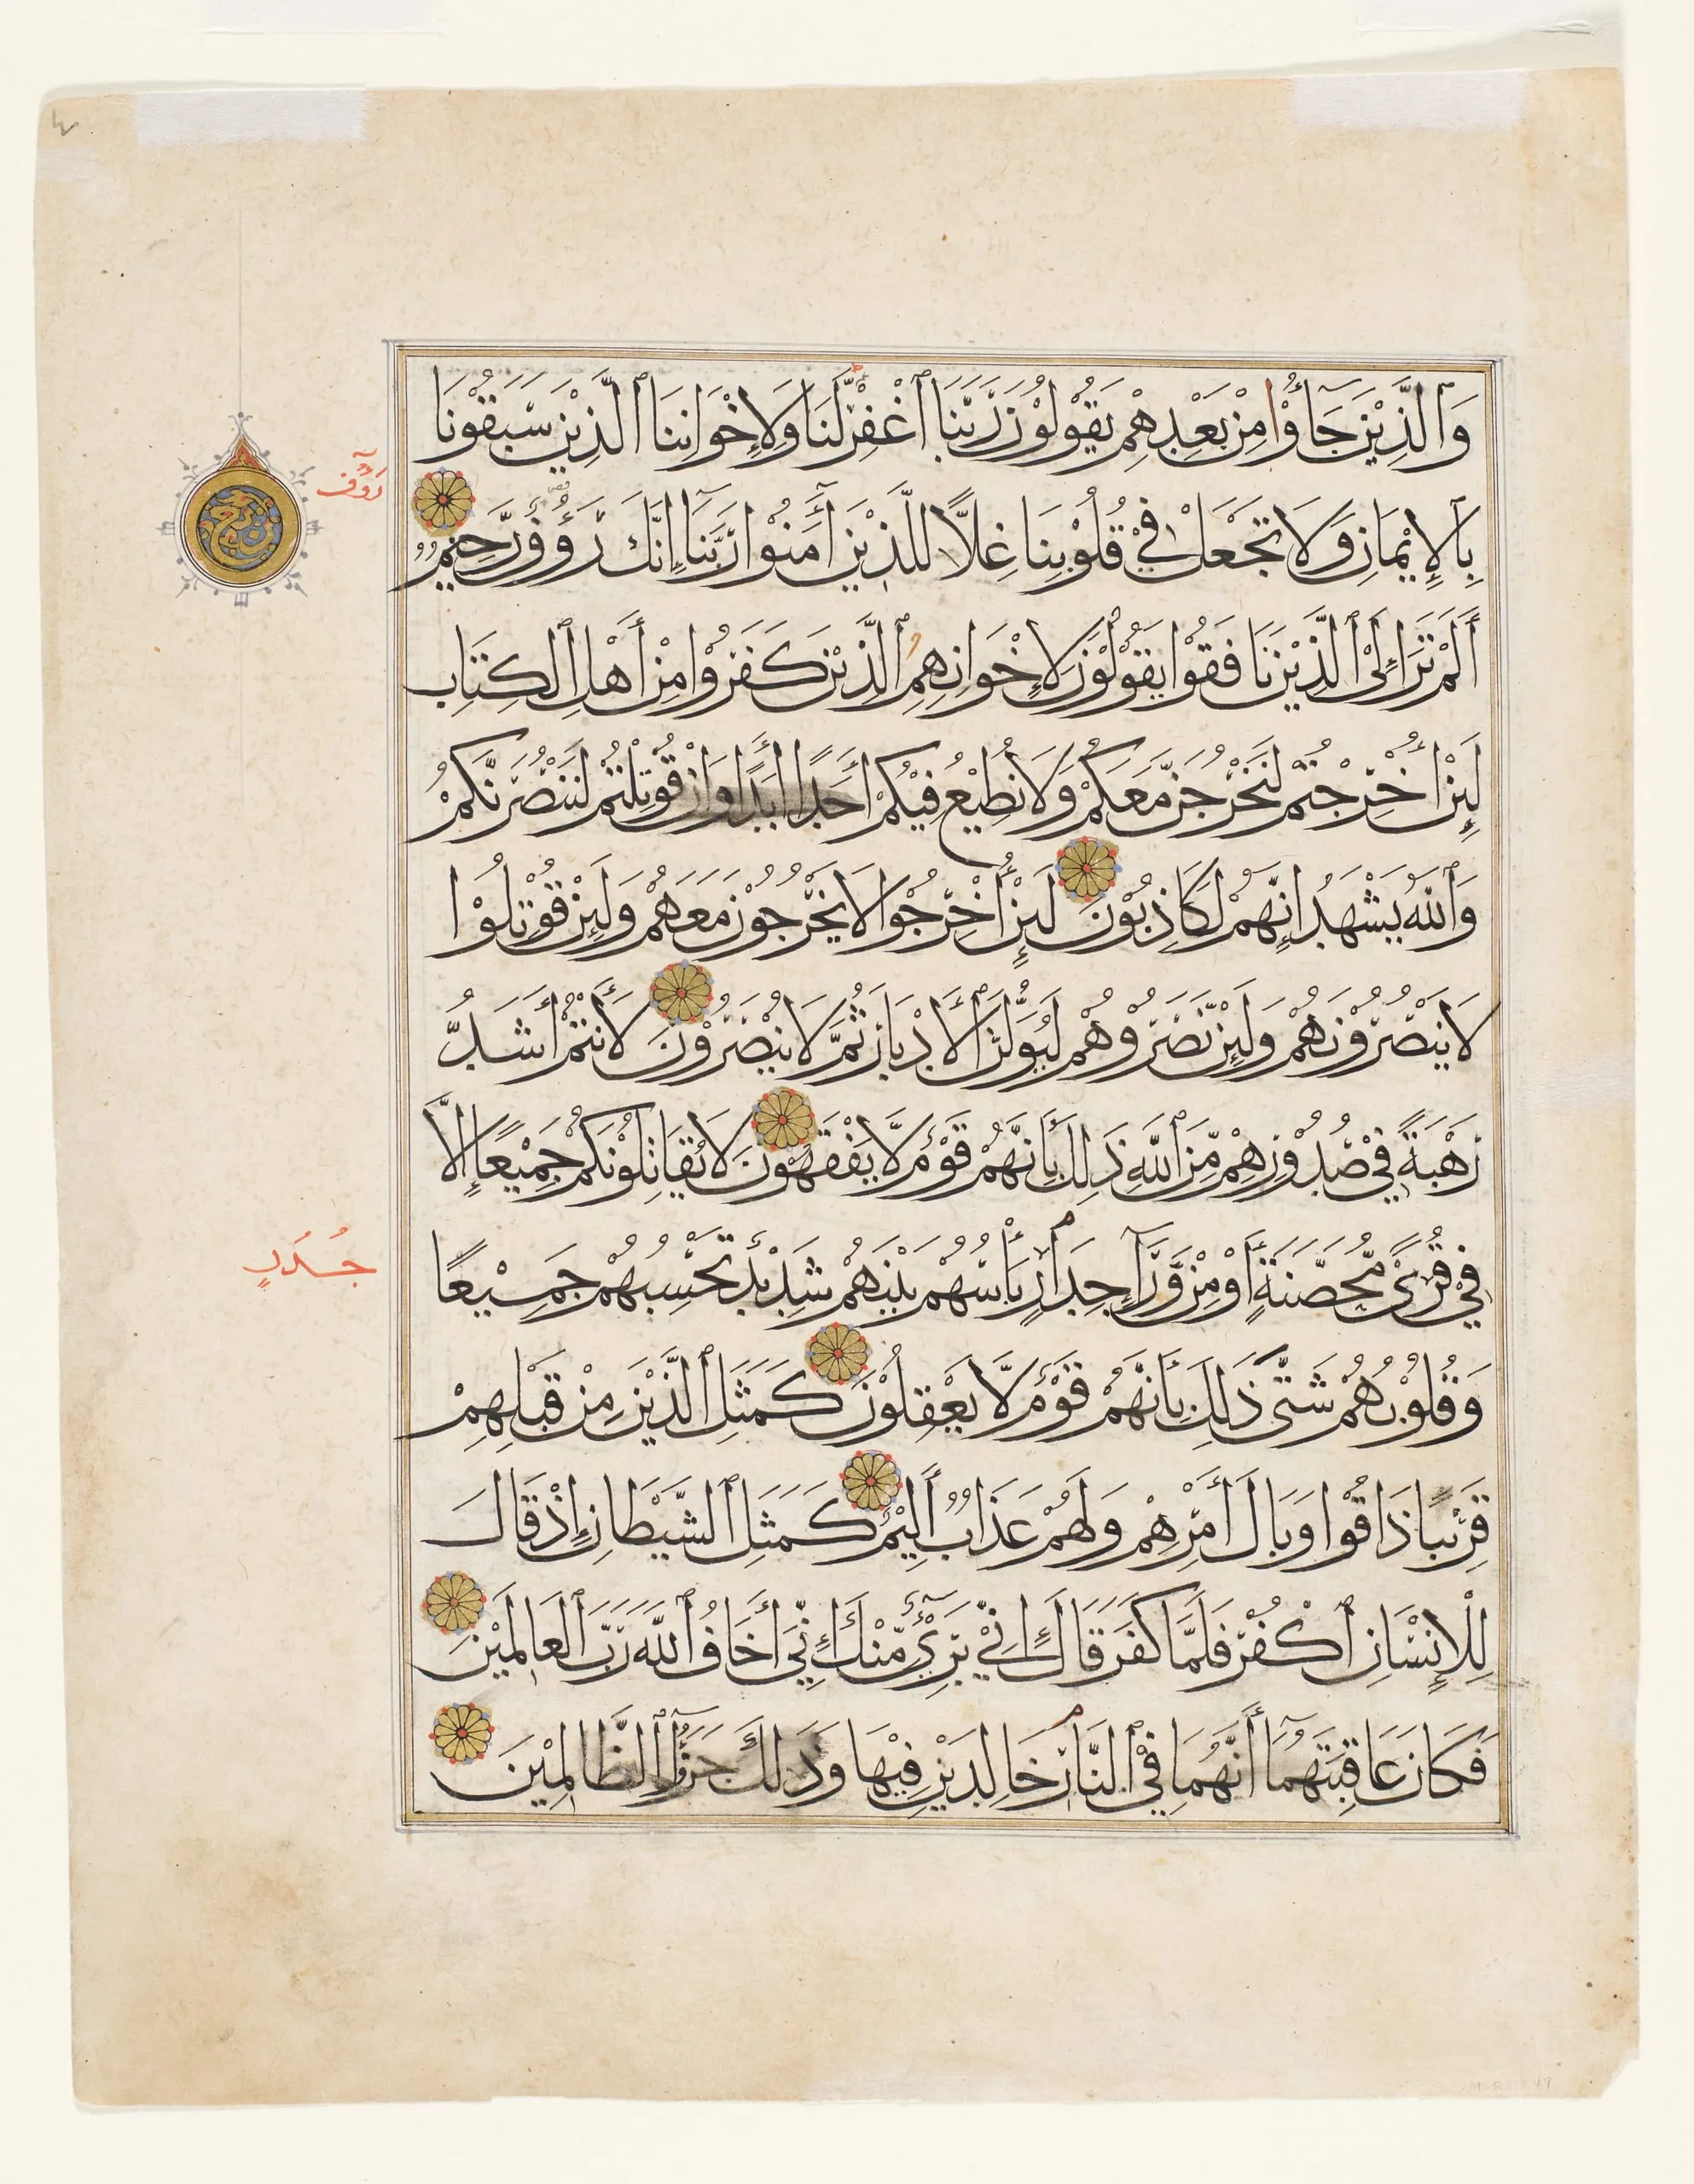 وَٱلَّذِيْنَ جَآءُوْا مِنْ بَعْدِهِمْ يَقُوْلُوْنَ رَبَّنَا ٱغْفِرْ لَّنَا وَلِإِخْوَانِنَا ٱلَّذِيْنَ سَبَقُوْنَا
رَءُوْف
بِٱلْإِيْمَانِ وَلَا تَجْعَلْ فِيْ قُلُوْبِنَا غِلاًّ لِلَّذِيْنَ آمَنُوْا رَبَّنَآ إِنَّكَ رَءُوْفٌ رَّحِيْمٌ
أَلَمْ تَرَ إِلَى ٱلَّذِيْنَ نَافَقُوْا يَقُوْلُوْنَ لِإِخْوَانِهِمُ ٱلَّذِيْنَ كَفَرُوْا مِنْ أَهْلِ ٱلْكِتَابِ
لَئِنْ أُخْرِجْتُمْ لَنَخْرُجَنَّ مَعَكُمْ وَلَا نُطِيْعُ فِيْكُمْ أَحَدًا أَبَدًا وَإِنْ قُوْتِلْتُمْ لَنَنْصُرَنَّكُمْ
وَٱللّٰهُ يَشْهَدُ إِنَّهُمْ لَكَاذِبُوْنَ لَئِنْ أُخْرِجُوْا لَا يَخْرُجُوْنَ مَعَهُمْ وَلَئِنْ قُوْتِلُوْا
لَا يَنْصُرُوْنَهُمْ وَلَئِنْ نَّصَرُوْهُمْ لَيُوَلُّنَّ ٱلْأَدْبَارَ ثُمَّ لَا يُنْصَرُوْنَ لَأَنْتُمْ أَشَدُّ
رَهْبَةً فِيْ صُدُوْرِهِمْ مِّنَ ٱللّٰهِ ذَلِكَ بِأَنَّهُمْ قَوْمٌ لَّا يَفْقَهُوْنَ لَا يُقَاتِلُوْنَكُمْ جَمِيْعًا إِلَّا
جُدُرٍ
فِيْ قُرًى مُّحَصَّنَةٍ أَوْ مِنْ وَّرَآءِ جِدَارٍ بَأْسُهُمْ بَيْنَهُمْ شَدِيْدٌ تَحْسِبُهُمْ جَمِيْعًا
وَقُلُوْبُهُمْ شَتَّى ذَلِكَ بِأَنَّهُمْ قَوْمٌ لَّا يَعْقِلُوْنَ كَمَثَلِ ٱلَّذِيْنَ مِنْ قَبْلِهِمْ
قَرِيْبًا ذَاقُوْا وَبَالَ أَمْرِهِمْ وَلَهُمْ عَذَابٌ أَلِيْمٌ كَمَثَلِ ٱلشَّيْطَانِ إِذْ قَالَ
لِلْإِنْسَانِ ٱكْفُرْ فَلَمَّا كَفَرَ قَالَ إِنِّيْ بَرِيْٓءٌ مِّنْكَ إِنِّيْٓ أَخَافُ ٱللّٰهَ رَبَّ ٱلْعَالَمِيْنَ
فَكَانَ عَاقِبَتَهُمَآ أَنَّهُمَا فِي ٱلنَّارِ خَالِدَيْنِ فِيْهَا وَذَلِكَ جَزَٰٓؤُا ٱلظَّالِمِيْنَ